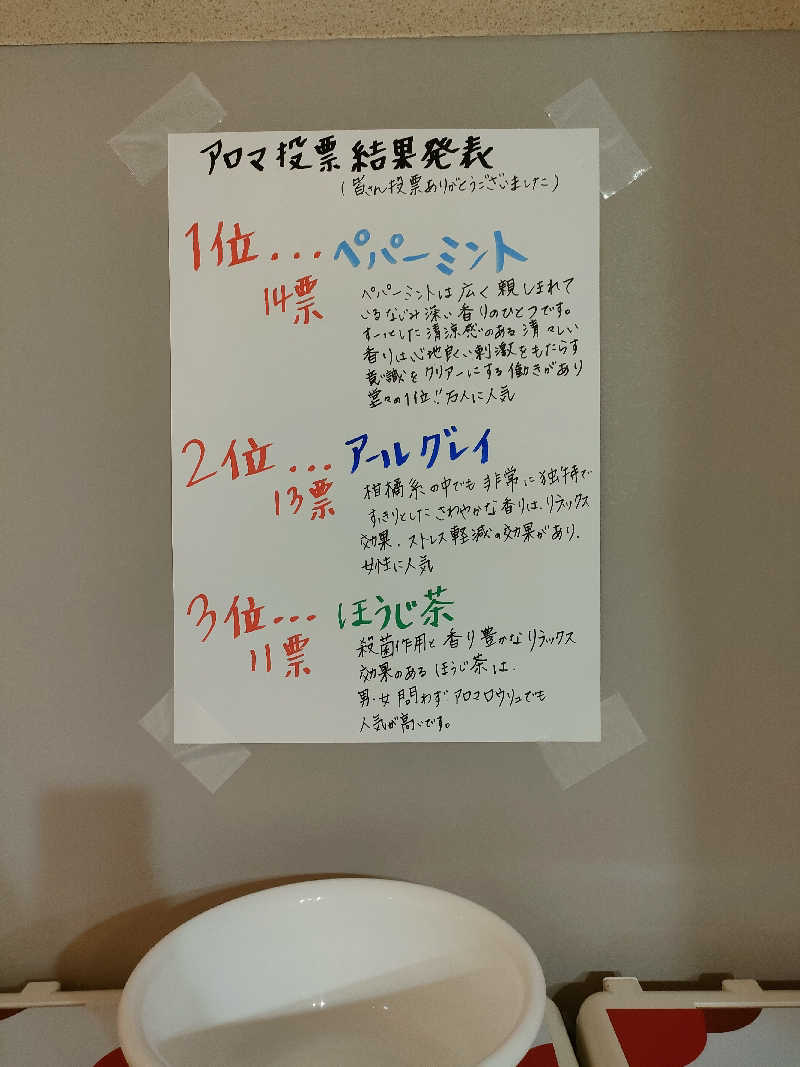 アロマ投票結果発表
(皆さん投票ありがとうございました)
1位...ペパーミント
14票
ペパーミントは広く親しまれて
いるなじみ深い香りのひとつです。
すーっとした清涼感のある清々しい
香りは心地良い刺激をもたらす
意識をクリアーにする働きがあり
堂々の1位!!万人に人気
2位...アールグレイ
13票
柑橘系の中でも非常に独特で
すっきりとしたさわやかな香りは、リラックス
効果、ストレス軽減の効果があり、
女性に人気
3位...ほうじ茶
11票
殺菌作用と香り豊かなリラックス
効果のあるほうじ茶は、
男・女問わずアロマロウリュでも
人気が高いです。